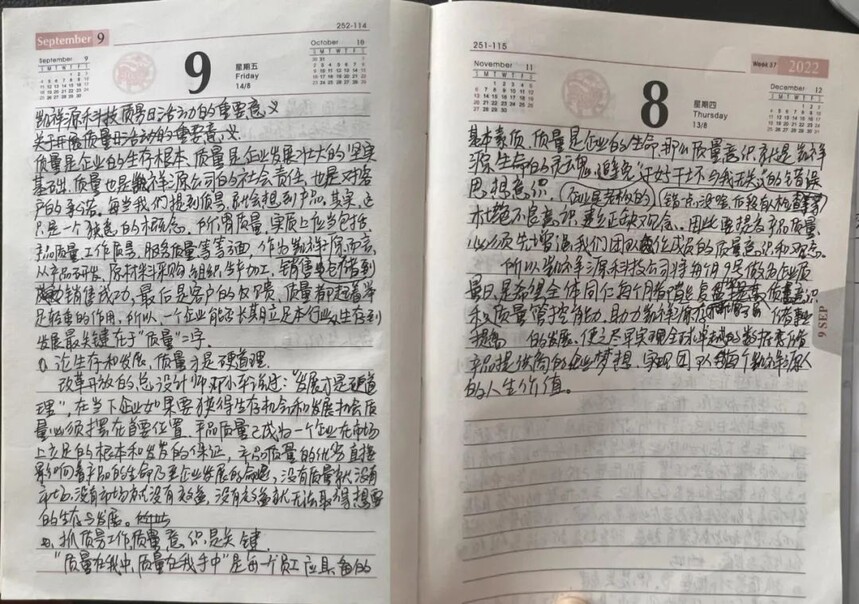 September 9
252-114
September 9
S M T W T F S
9
星期五
Friday
14/8
October 10
S M T W T F S
凯祥源科技质量日活动的重要意义
关于开展质量日活动的重要意义
质量是企业的生存根本、质量是企业发展壮大的坚实
基础、质量也是凯祥源公司的社会责任，也是对客
户的承诺。每当我们提到质量，就会想到产品，其实，这
只是一个狭意的概念。所谓质量，实质上应当包括
产品质量、工作质量、服务质量等等方面，作为凯祥源而言，
从产品研发、原材料采购、组织生产加工，销售仓储到
销售成功，最后是客户的反馈，质量都起着举
足轻重的作用，所以一个企业能否长期立足本行业及生存到
发展最关键在于"质量"二字。
1、论生存和发展，质量才是硬道理。
改革开放的总设计师邓小平说过："发展才是硬道
理"，在当下企业如果要获得生存机会和发展机会质
量必须摆在首要位置，产品质量已成为一个企业在市场
上立足的根本和发展的保证，产品质量的优劣直接
影响着产品的生命乃至企业发展的命运，没有质量就没有
市场，没有市场就没有效益，没有效益就无法取得想要
的生存与发展。
2、抓质量工作质量意识是关键。
"质量在我心中，质量在我手中"是每一个员工应具备的
251-115
Week 37 2022
November 11
S M T W T F S
8
星期四
Thursday
13/8
December 12
S M T W T F S
基本素质，质量是企业的生命，那么质量意识就是凯祥
源生命的灵魂，避免"好与坏与我无关"的错误
思想意识，
不良意识，矫正缺观念。因此要提高产品质量，
必须先增强我们团队成员的质量意识和观念。
所以凯祥源科技公司将每月9号做为企业质
量日，是希望全体同仁每个月都提高质量意识
和质量管控能力，助力凯祥源
的发展，使之尽早实现全球卓越的数据存储
产品提供商的企业梦想，实现团队每个凯祥源人
的人生价值。
9 SEP